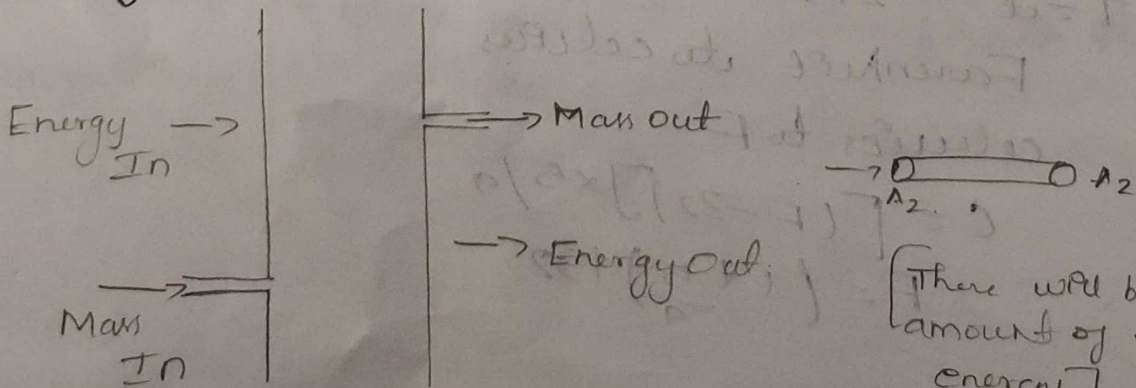 Energy
In
Mass
In
Mass out
Energy Out;
A2
A2
[There will b
amount of
energy]